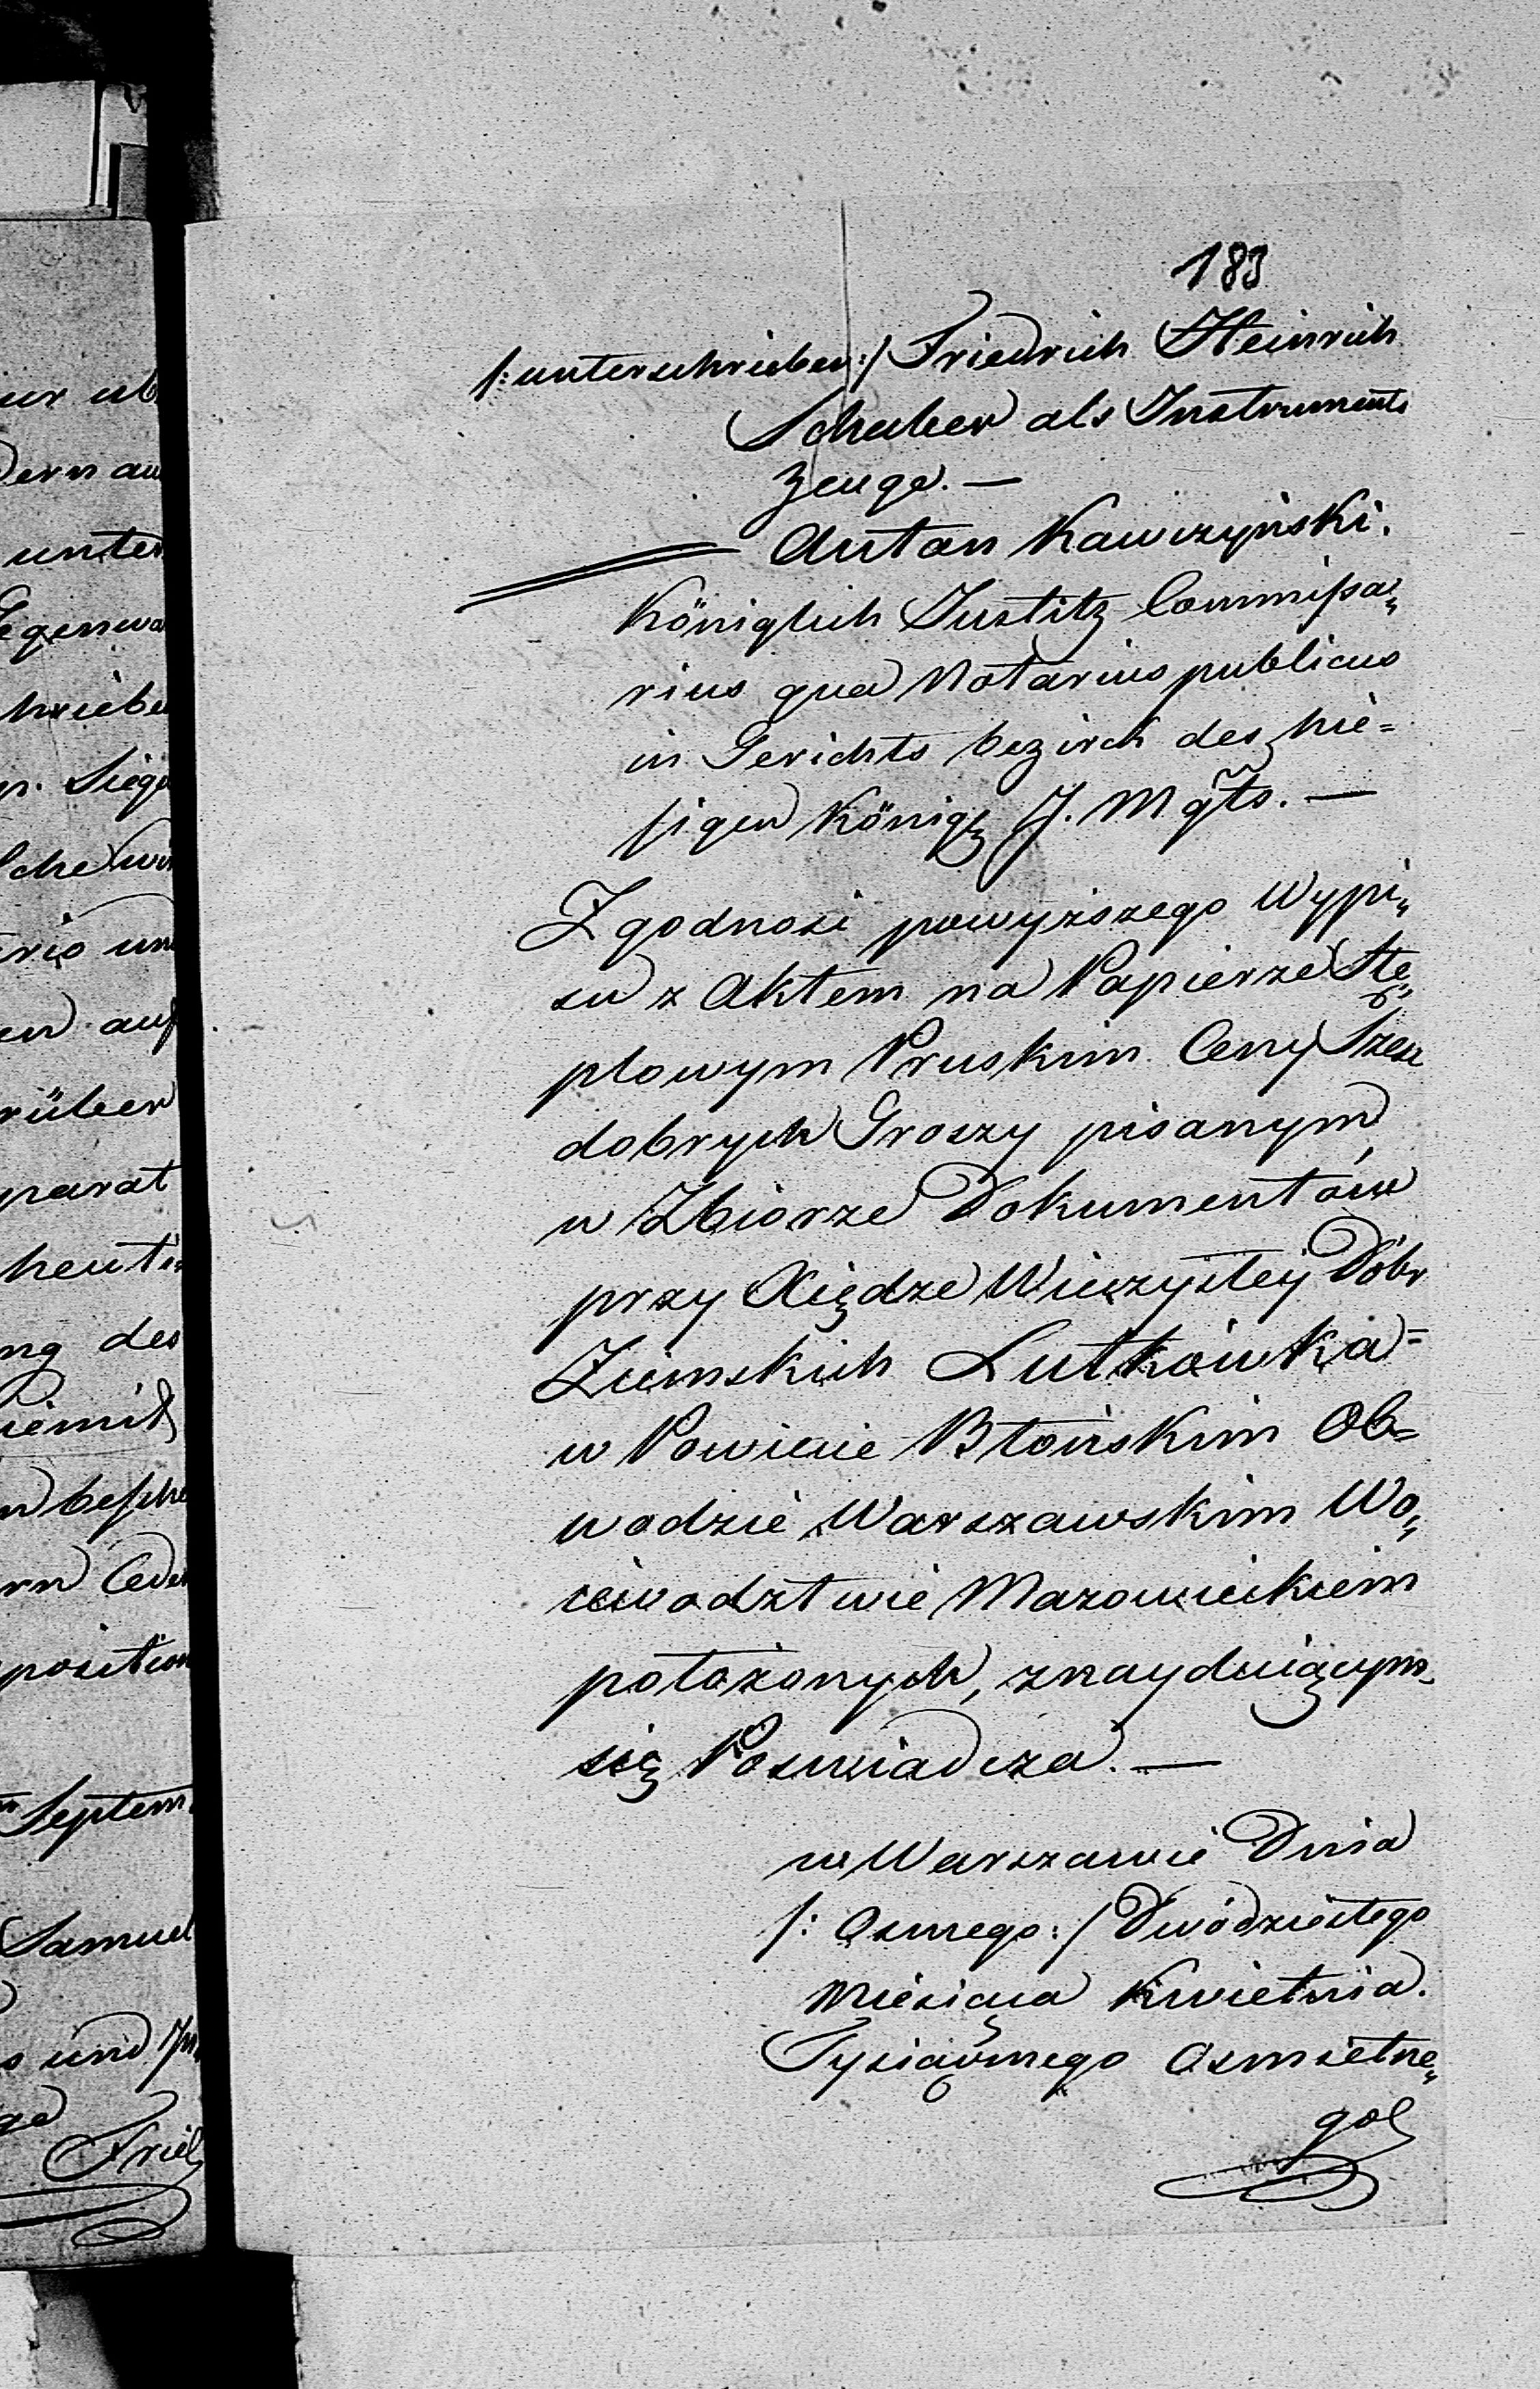 183
/: unterschrieben :/ Friedrich Heinrich
Schuber als Instruments
Zeuge. —
Anton Kawczyński.
Königlich Justitz Commißa„
rius qua Notarius publicus
in Gerichts bezirck des hie=
sigen Königl J. Mgts. —
Zgodność powyższego Wypi„
su z Aktem na Papierze Stę„
plowym Pruskim Ceny Sześć
dobrych Groszy pisanym,
w Zbiorze Dokumentów
przy Xiędze Wieczystey Dóbr
Ziemskich Lutkówka=
w Powiecie Błońskim Ob=
wodzie Warszawskim Wo„
iewodztwie Mazowieckiem
położonych, znayduiącym
się Poświadcza. —
w Warszawie Dnia
/: Osmego :/ Dwódziestego
Miesiąca Kwietnia.
Tysiącznego Osmsetne„
go
unter
Gegenwa
hriebe
Siege
rüber
parat
ng des
position
Septem
Samuel
und